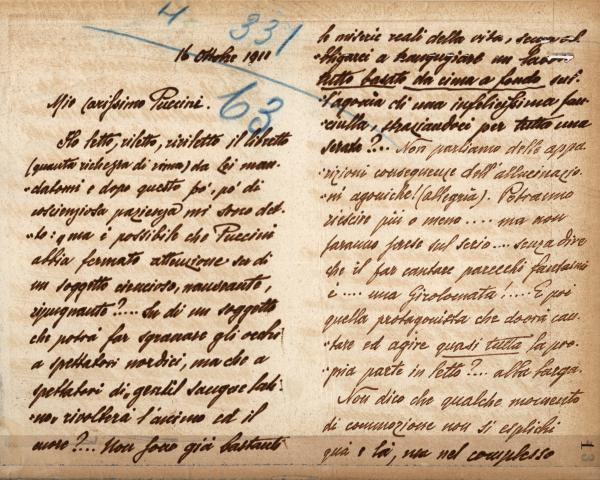 4
331
63
16 Ottobre 1911
Mio Carissimo Puccini.
Ho letto, riletto, ririletto il libretto
(quanta richezza di rima) da Lei man-
datomi e dopo questo po', po' di
coscienziosa pazienza mi sono det-
to: ma è possibile che Puccini
abbia fermato attenzione su di
un soggetto
ripugnante?.... Su di un soggetto
che potrà far sgranare gli occhi
a spettatori nordici, ma che a
spettatori di, gentil sangue lati-
no, rivolterà l'animo ed il
cuore?.... Non sono già bastanti
le miserie reali della vita, senza ob-
bligarci a trangugiare un
tutto basato da cima a fondo sul-
l'agonia di una infelicissima fan-
ciulla, straziandoci per tutta una
serata?... Non parliamo delle appa-
rizioni conseguenze dell'allucinazio-
ni agoniche! (allegria). Potranno
riescire più o meno.... ma non
faranno forse sul serio.... senza dire
che il far cantare parecchi fantasmi
è.... una Girolamata!.... E poi
quella protagonista che dovrà can-
tare ed agire quasi tutta la pro-
pria parte in letto?... alla larga.
Non dico che qualche momento
di commozione non si esplichi
quà e là, ma nel complesso
13